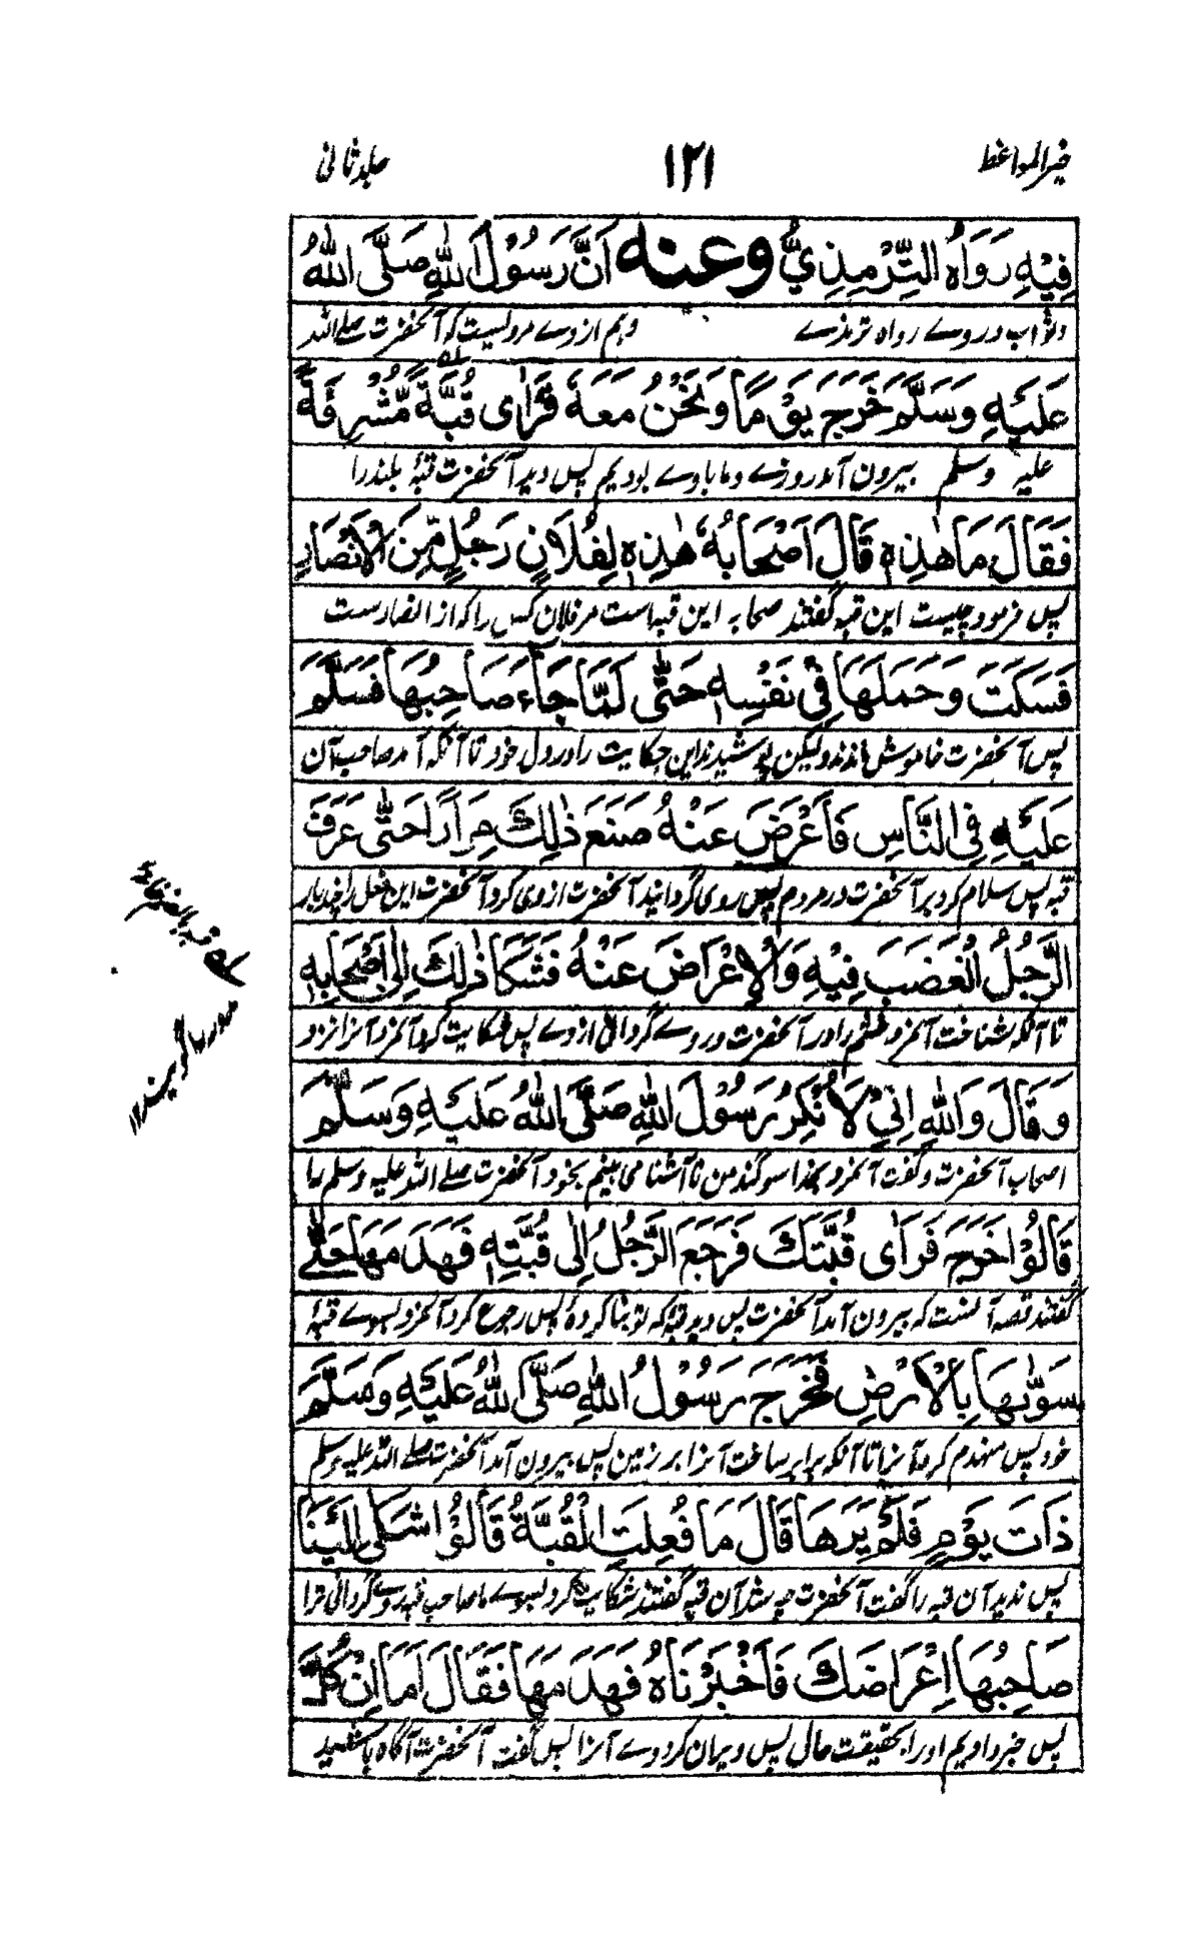 خیر المواعظ ۱۲۱ جلد ثانی
فِيْهِ رَوَاهُ التِّرْمِذِيُّ وعنه اَنَّ رَسُوْلَ اللهِ صَلَّى اللهُ
وثواب در وے رواہ ترمذے وہم از وے مرویست کہ آنحضرت صلے اللہ
عَلَيْهِ وَسَلَّمَ خَرَجَ يَوْمًا وَنَحْنُ مَعَهٗ فَرَاٰى قُبَّةً مُّشْرِفَةً
علیہ وسلم بیرون آمد روزے وما با وے بودیم پس دید آنحضرت قبۂ بلند را
فَقَالَ مَا هٰذِهٖ قَالَ اَصْحَابُهٗ هٰذِهٖ لِفُلَانٍ رَجُلٍ مِّنَ الْاَنْصَارِ
پس فرمود چیست این قبہ گفتند صحابہ این قبہ است مر فلان کس را کہ از انصارست
فَسَكَتَ وَحَمَلَهَا فِيْ نَفْسِهٖ حَتّٰى لَمَّا جَاءَ صَاحِبُهَا فَسَلَّمَ
پس آنحضرت خاموش ماندند ولیکن پوشیدند این حکایت را در دل خود تا آنکہ آمد صاحب آن
عَلَيْهِ فِى النَّاسِ فَاَعْرَضَ عَنْهُ صَنَعَ ذٰلِكَ مِرَارًا حَتّٰى عَرَفَ
قبہ پس سلام کرد بر آنحضرت در مردم پس روی گردانید آنحضرت از وی کرد آنحضرت این فعل را چند بار
الرَّجُلُ الْغَضَبَ فِيْهِ وَالْاِعْرَاضَ عَنْهُ فَشَكَا ذٰلِكَ اِلٰى اَصْحَابِهٖ
تا آنکہ شناخت آنمرد خشم را در آنحضرت و روے گردانی از وے پس شکایت کرد آنمرد آنرا نزد
وَقَالَ وَاللهِ اِنِّيْ لَاُنْكِرُ رَسُوْلَ اللهِ صَلَّى اللهُ عَلَيْهِ وَسَلَّمَ
اصحاب آنحضرت وگفت آنمرد بخدا سوگند من ناآشنا می بینم بخود آنحضرت صلے اللہ علیہ وسلم را
قَالُوْا خَرَجَ فَرَاٰى قُبَّتَكَ فَرَجَعَ الرَّجُلُ اِلٰى قُبَّتِهٖ فَهَدَمَهَا حَتّٰى
گفتند قصہ آنست کہ بیرون آمد آنحضرت پس دید قبۂ کہ تو بنا کردۂ پس رجوع کرد آنمرد بسوے قبۂ
سَوّٰىهَا بِالْاَرْضِ فَخَرَجَ رَسُوْلُ اللهِ صَلَّى اللهُ عَلَيْهِ وَسَلَّمَ
خود پس منہدم کرد آنرا تا آنکہ برابر ساخت آنرا بر زمین پس بیرون آمد آنحضرت صلے اللہ علیہ وسلم
ذَاتَ يَوْمٍ فَلَمْ يَرَهَا قَالَ مَا فُعِلَتِ الْقُبَّةُ قَالُوْا شَكٰى اِلَيْنَا
پس ندید آن قبہ را گفت آنحضرت چہ شد آن قبہ گفتند شکایت کرد بسوے ما صاحب قبہ روے گردانی ترا
صَاحِبُهَا اِعْرَاضَكَ فَاَخْبَرْنَاهُ فَهَدَمَهَا فَقَالَ اَمَا اِنَّ كُلَّ
پس خبر دادیم او را بحقیقت حال پس ویران کرد وے آنرا پس گفت آنحضرت آگاہ باشید